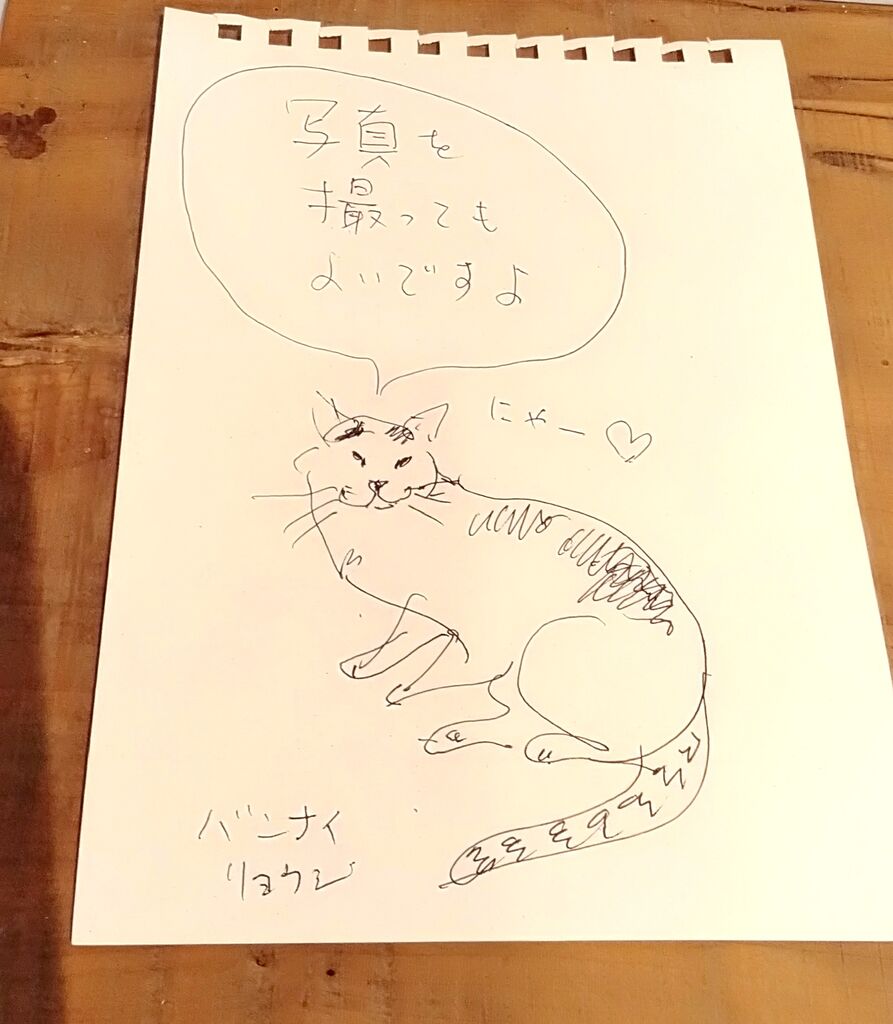 写真を
撮っても
よいですよ
にゃー♡
バンナイ
リョウジ